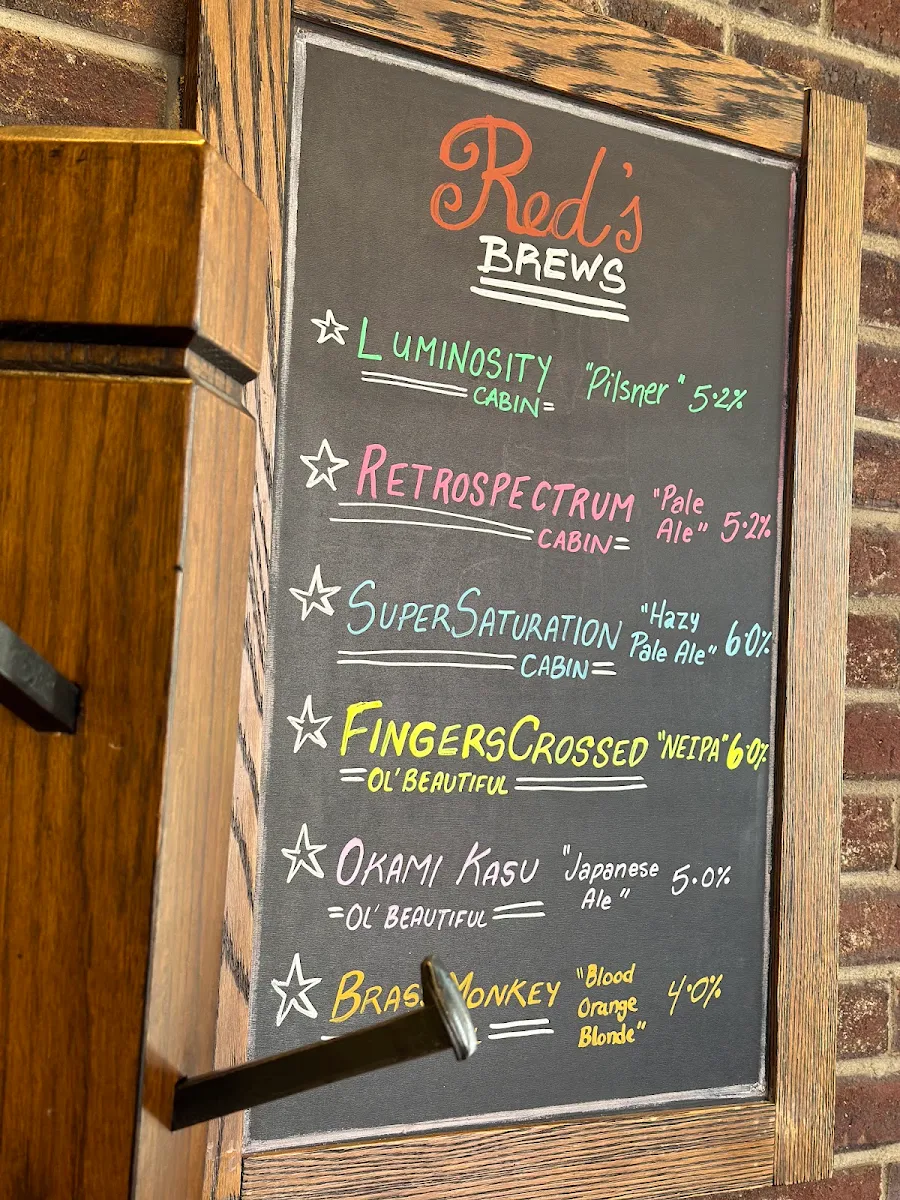 Red's
BREWS
LUMINOSITY "Pilsner" 5.2%
CABIN
RETROSPECTRUM "Pale
Ale" 5.2%
CABIN
SUPERSATURATION "Hazy
Pale Ale" 6.0%
CABIN
FINGERSCROSSED "NEIPA" 6.0%
OL' BEAUTIFUL
OKAMI KASU "Japanese
Ale" 5.0%
OL' BEAUTIFUL
MONKEY "Blood
Orange 4.0%
Blonde"